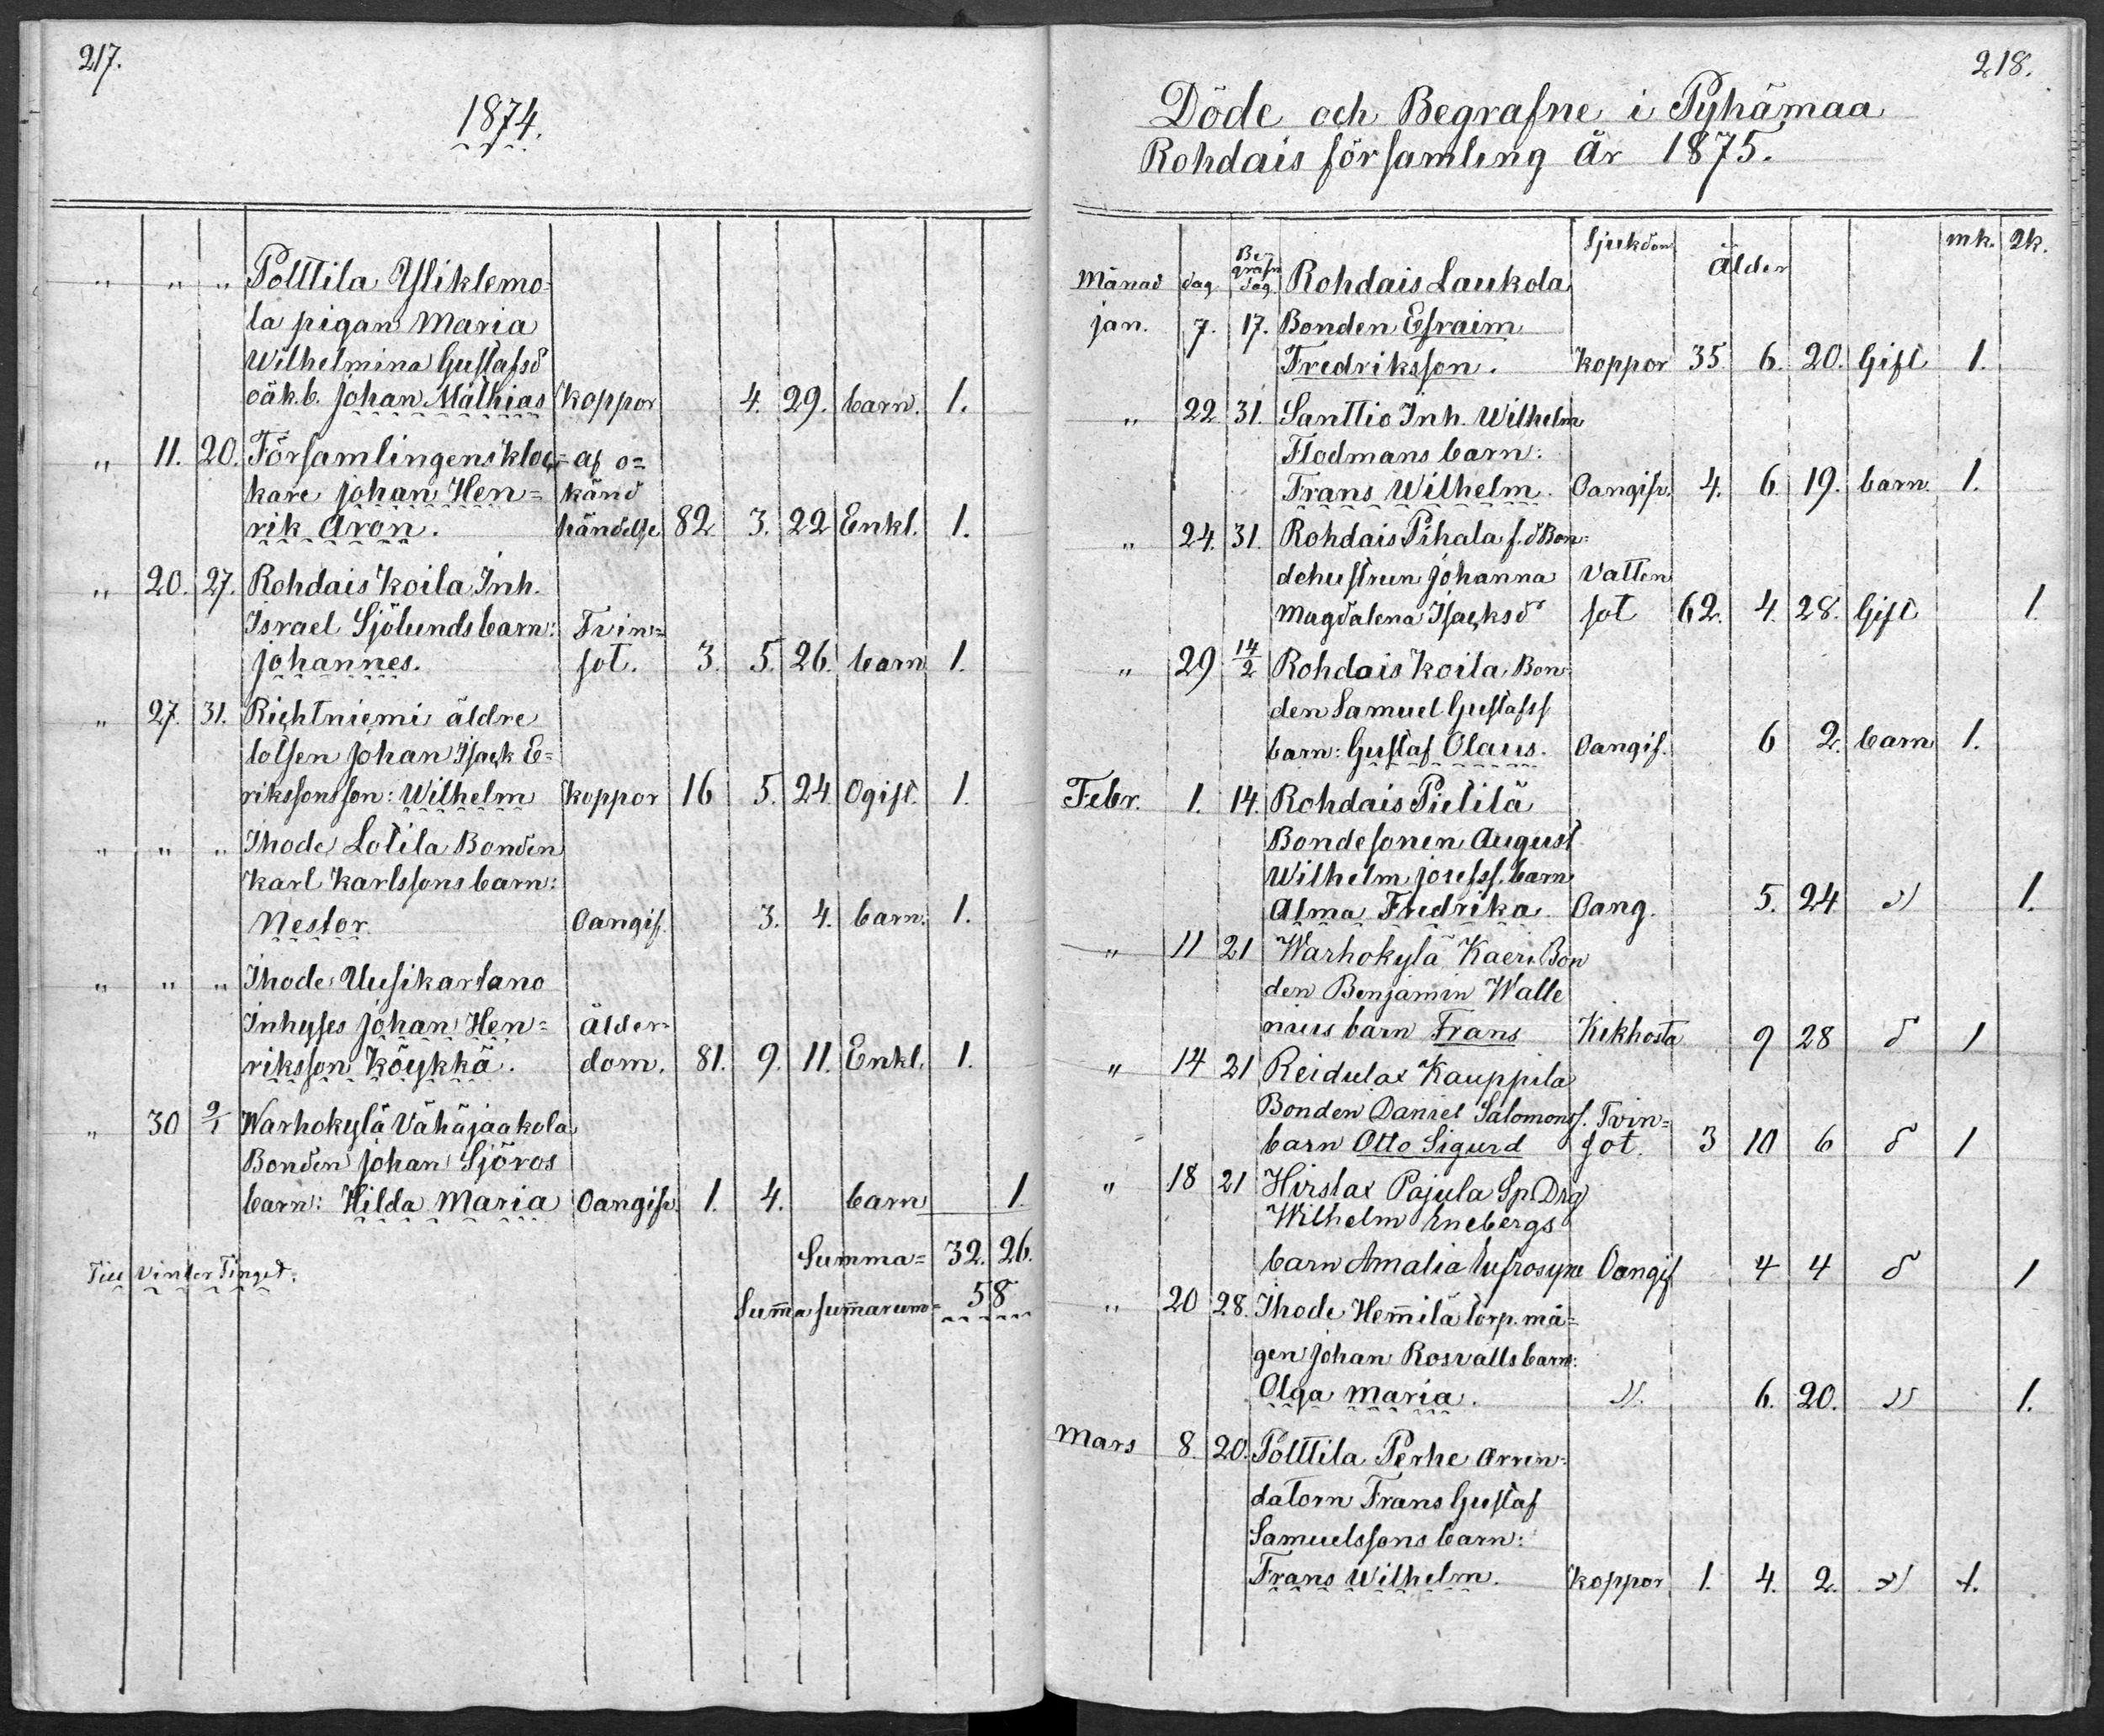 217.
1874.
" " " Polttila Yliklemo-
la pigan Maria
Wilhelmina Gustafsd
oäk.b. Johan Mathias koppor 4. 29. barn. 1.
" 11. 20. Församlingens kloc- af o=
kare Johan Hen= känd
rik Aron. händelse 82 3. 22 Enkl. 1.
" 20. 27. Rohdais Koila Inh.
Israel Sjölunds barn: Tvin=
Johannes. sot. 3. 5. 26. barn 1.
" 27. 31. Richtniemi äldre
lotsen Johan Isack E=
rikssons son: Wilhelm koppor 16 5. 24 Ogift. 1.
" " " Ihode Lotila Bonden
Karl Karlssons barn:
Nestor Oangif. 3. 4. barn. 1.
" " " Ihode Uusikartano
Inhyses Johan Hen= ålder-
riksson Köykkä. dom. 81. 9. 11. Enkl. 1.
" 30 9/1 Warhokylä Vähäjaakola
Bonden Johan Sjöros
barn: Hilda Maria Oangif. 1. 4. barn 1.
Summa= 32. 26.
Till Vinter Tinget.
Sum̄a sum̄arum= 58
218.
Döde och Begrafne i Pyhämaa
Rohdais församling År 1875.
Sjukdom mk. qk.
Månad dag Be-
grafn
dag Rohdais Laukola Ålder
jan. 7. 17. Bonden Efraim
Fredriksson. Koppor 35. 6. 20. Gift 1.
" 22 31. Santtio Inh. Wilhelm
Flodmans barn:
Frans Wilhelm. Oangifv. 4. 6. 19. barn. 1.
" 24. 31. Rohdais Pihala f.d Bon=
dehustrun Johanna Vatten
Magdalena Isacksd sot 62. 4. 28. Gift 1.
" 29 14/2 Rohdais Koila Bon-
den Samuel Gustafss
barn: Gustaf Olaus. Oangif. 6 2. barn 1.
Febr. 1. 14. Rohdais Pietilä
Bondesonen August
Wilhelm josefss. barn
Alma Fredrika Oang. 5. 24 " 1.
" 11 21 Warhokylä Kaeri Bon
den Benjamin Walle
nius barn Frans Kikhosta 9 28 d 1
" 14 21 Reidulax Kauppila
Bonden Daniel Salomonss. Tvin=
barn Otto Sigurd sot. 3 10 6 d 1
" 18 21 Hirslax Pajula Sp. Drg
Wilhelm Enebergs
barn Amalia Eufrosyne Oangif 4 4 d 1
" 20 28. Ihode Hem̄ilä torp. må=
gen Johan Rosvalls barn:
Olga Maria. " 6. 20. " 1.
Mars 8. 20. Polttila Perhe Arren-
datorn Frans Gustaf
Samuelssons barn:
Frans Wilhelm. koppor 1. 4. 2. " 1.